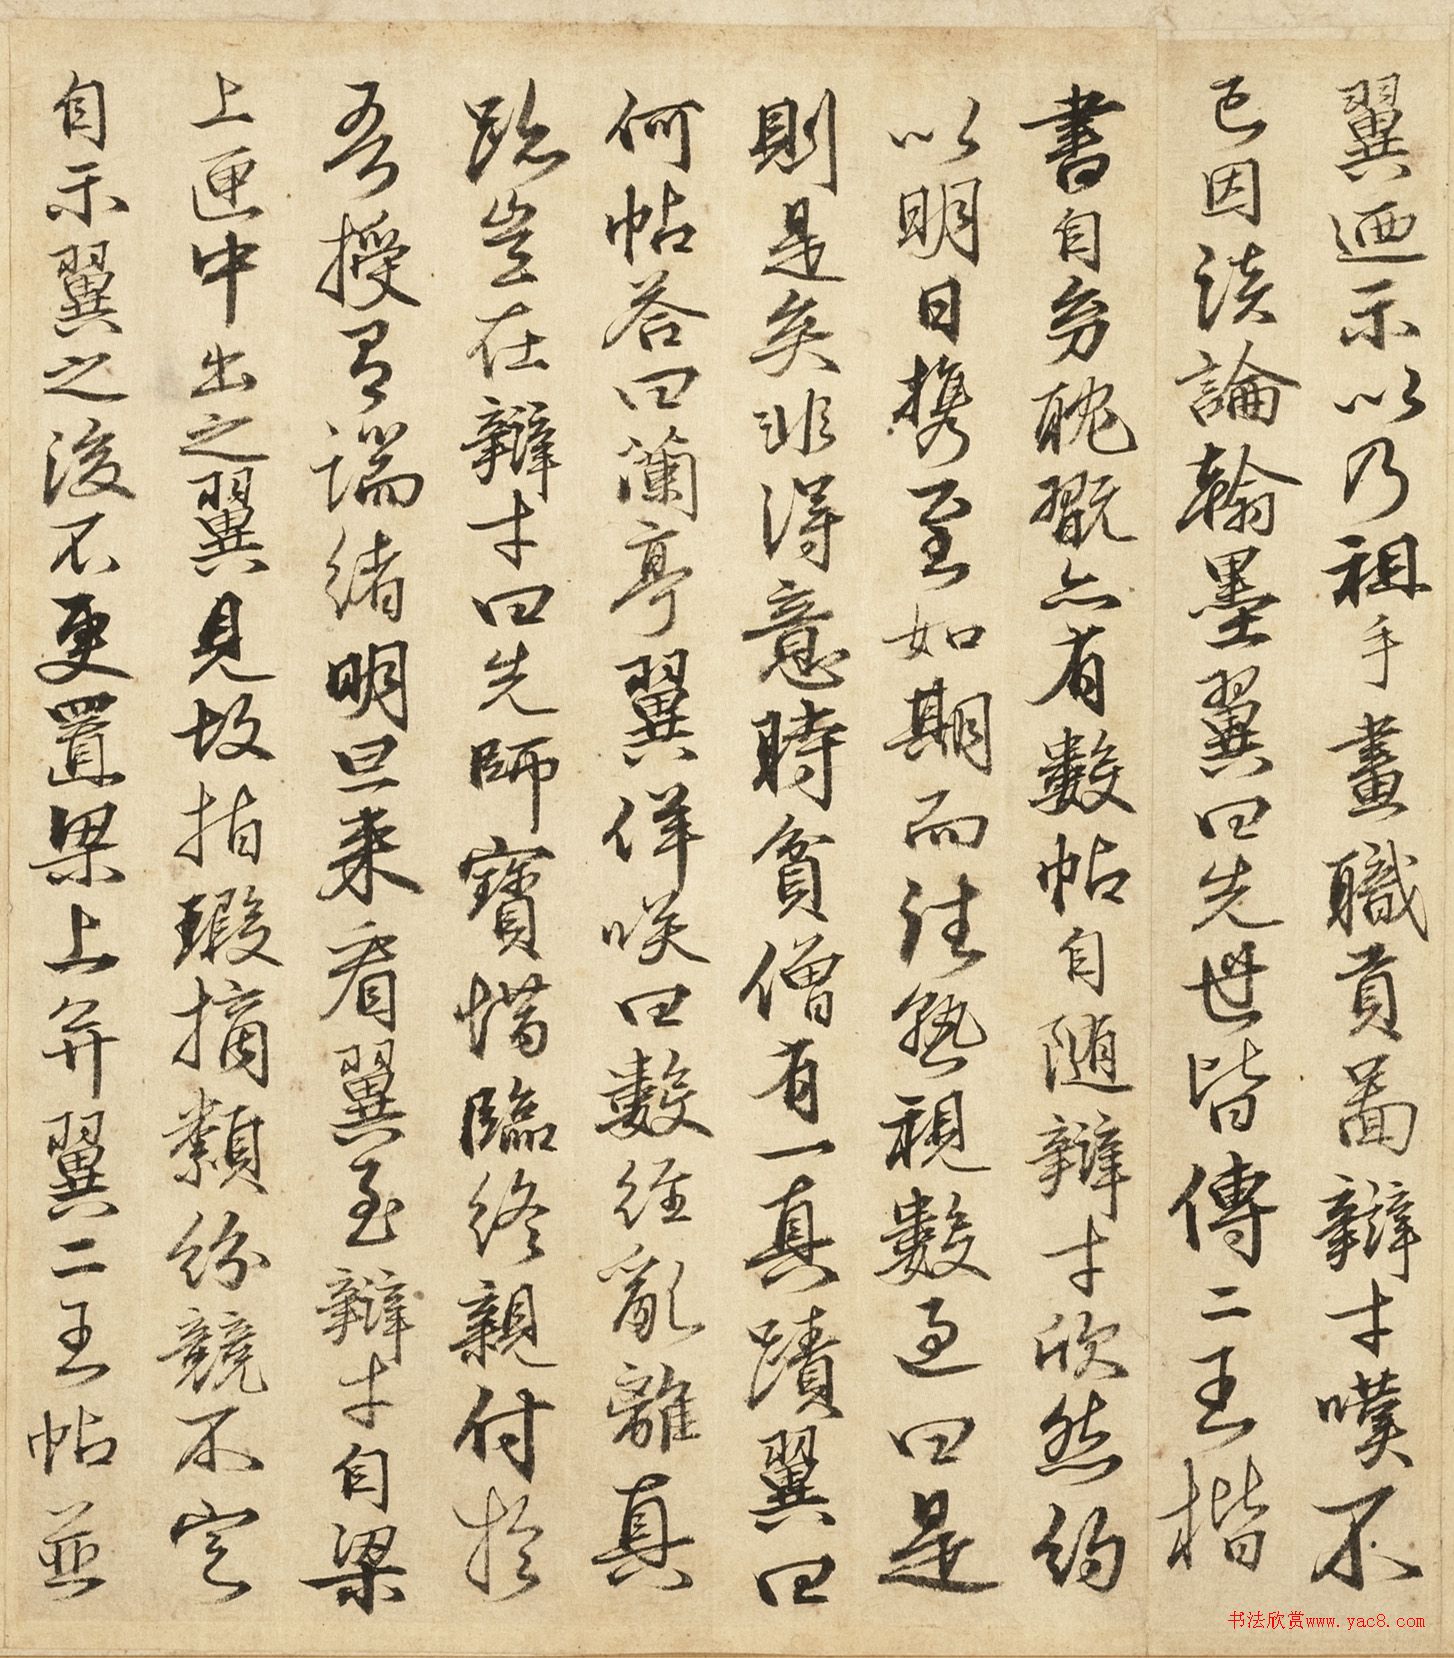 翼迺示以乃祖手畫職貢圖辯才嘆不
已因談論翰墨翼曰先世皆傳二王楷
書自幼耽翫亦有數帖自随辯才欣然約
以明日携至如期而往熟視數過曰是
則是矣非得意時貧僧有一真蹟翼曰
何帖答曰蘭亭翼佯咲曰數經亂離真
跡豈在辯才曰先師寶惜臨終親付於
吾授有端緒明旦来看翼至辯才自梁
上匣中出之翼見故指瑕摘纇紛競不定
自示翼之後不更置梁上并翼二王帖並
书法欣赏www.yac8.com